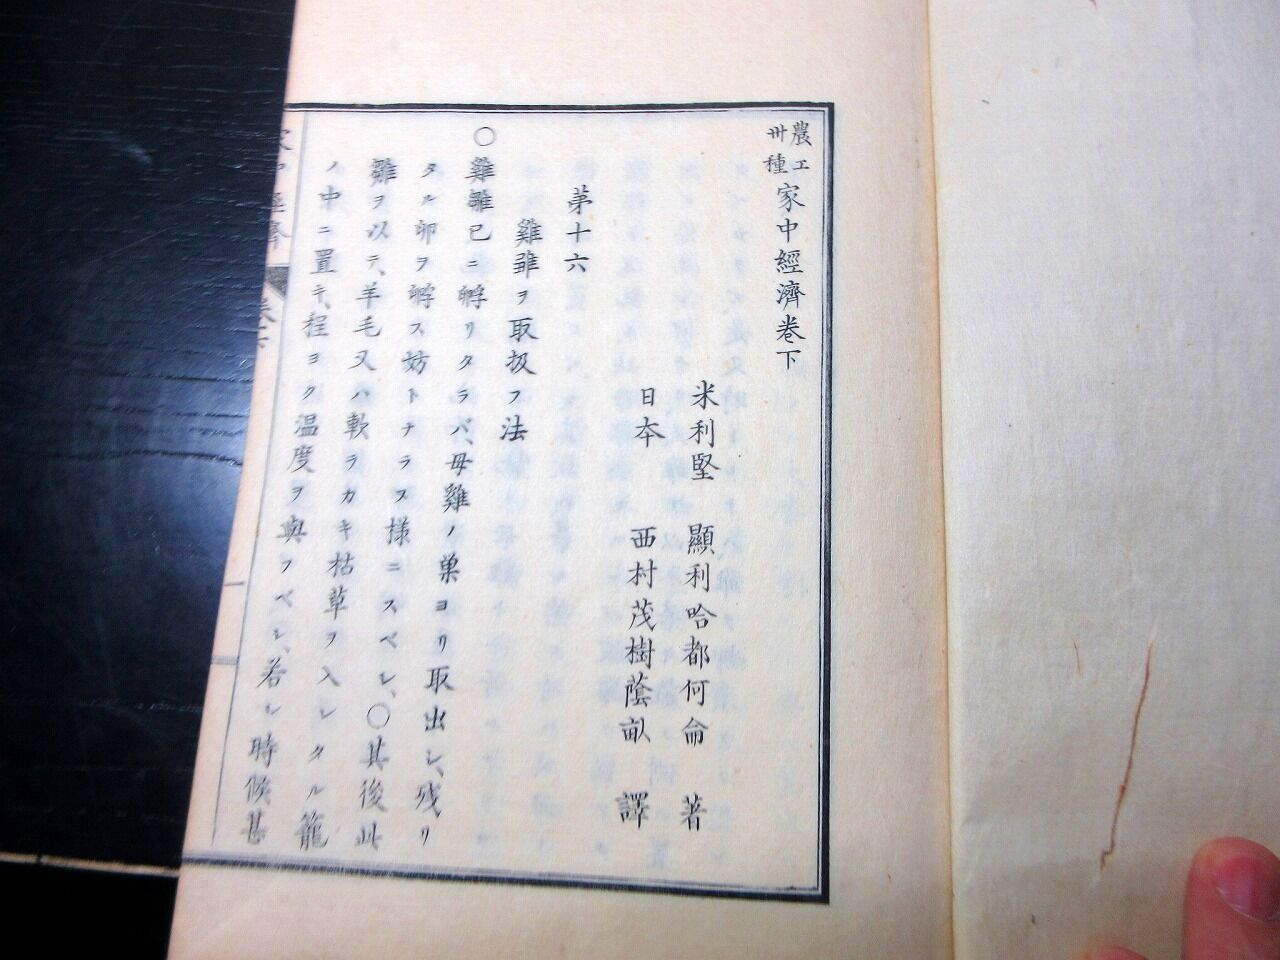 農工卅種家中經濟卷下
米利堅　顯利哈都何侖　著
日本　西村茂樹蔭畝　譯
苐十六
雞雛ヲ取扱フ法
○雞雛已ニ孵リタラバ、母雞ノ巣ヨリ取出シ、残リ
タル卵ヲ孵ス妨トナラヌ様ニスベシ、○其後此
雛ヲ以テ、羊毛又ハ軟ラカキ枯草ヲ入レタル籠
ノ中ニ置キ、程ヨク温度ヲ與フベシ、若シ時候甚